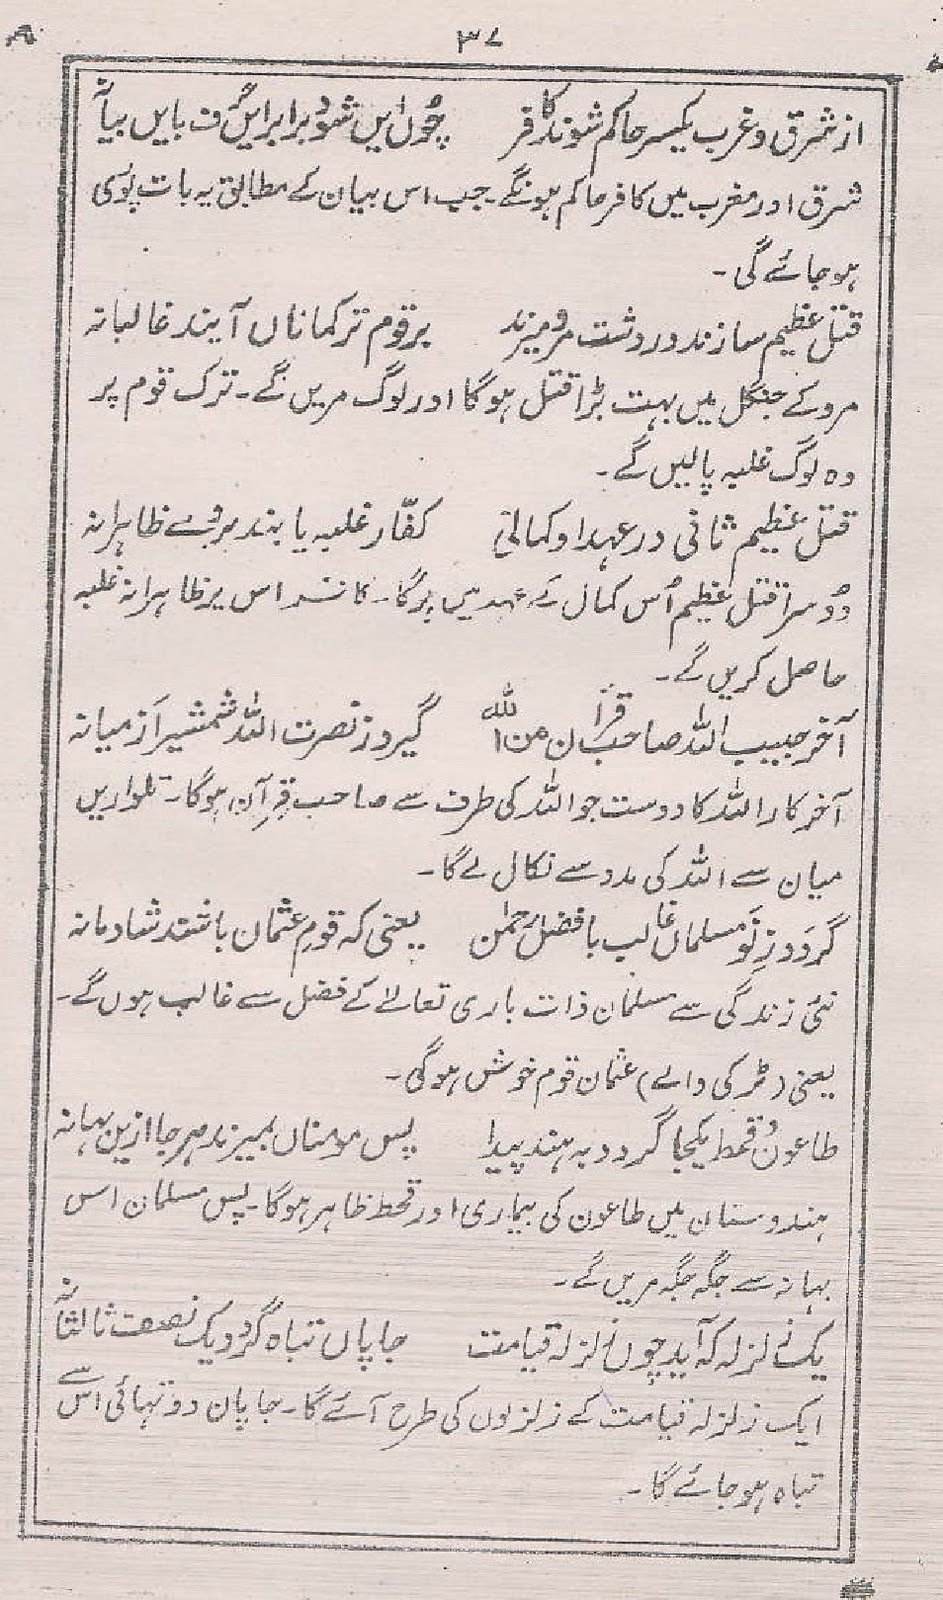 ۳۷
از شرق و غرب یکسر حاکم شوند کافر چوں ایں شود برابر ایں حرف بایں بیانہ
شرق اور مغرب میں کافر حاکم ہونگے۔ جب اس بیان کے مطابق یہ بات پوری
ہو جائے گی۔
قتل عظیم سازند در دشت مرو میرند بر قوم ترکماناں آیند غالبانہ
مرو کے جنگل میں بہت بڑا قتل ہوگا اور لوگ مریں گے۔ ترک قوم پر
وہ لوگ غلبہ پالیں گے۔
قتل عظیم ثانی در عہد او کمالی کفّار غلبہ یابند بروے ظاہرانہ
دُوسرا قتل عظیم اُس کمال کے عہد میں ہوگا۔ کافر اس پر ظاہرانہ غلبہ
حاصل کریں گے۔
آخر حبیب اللہ صاحب قرآن من اللہ گیرد ز نصرت اللہ شمشیر از میانہ
آخر کار اللہ کا دوست جو اللہ کی طرف سے صاحب قرآن ہوگا۔ تلواریں
میان سے اللہ کی مدد سے نکال لے گا۔
گردد زِ نَو مسلماں غالب با فضل رحمٰن یعنی کہ قوم عثمان باشند شادمانہ
نئی زندگی سے مسلمان ذات باری تعالےٰ کے فضل سے غالب ہوں گے۔
یعنی (ٹرکی والے) عثمان قوم خوش ہوگی۔
طاعون و قحط یکجا گردد بہ ہند پیدا پس مومناں بمیرند ہر جا ازین بہانہ
ہندوستان میں طاعون کی بیماری اور قحط ظاہر ہوگا۔ پس مسلمان اس
بہانہ سے جگہ جگہ مریں گے۔
یک زلزلہ کہ آید چوں زلزلہ قیامت جاپاں تباہ گردد یک نصف ثالثانہ
ایک زلزلہ قیامت کے زلزلوں کی طرح آئے گا۔ جاپان دو تہائی اس سے
تباہ ہو جائے گا۔